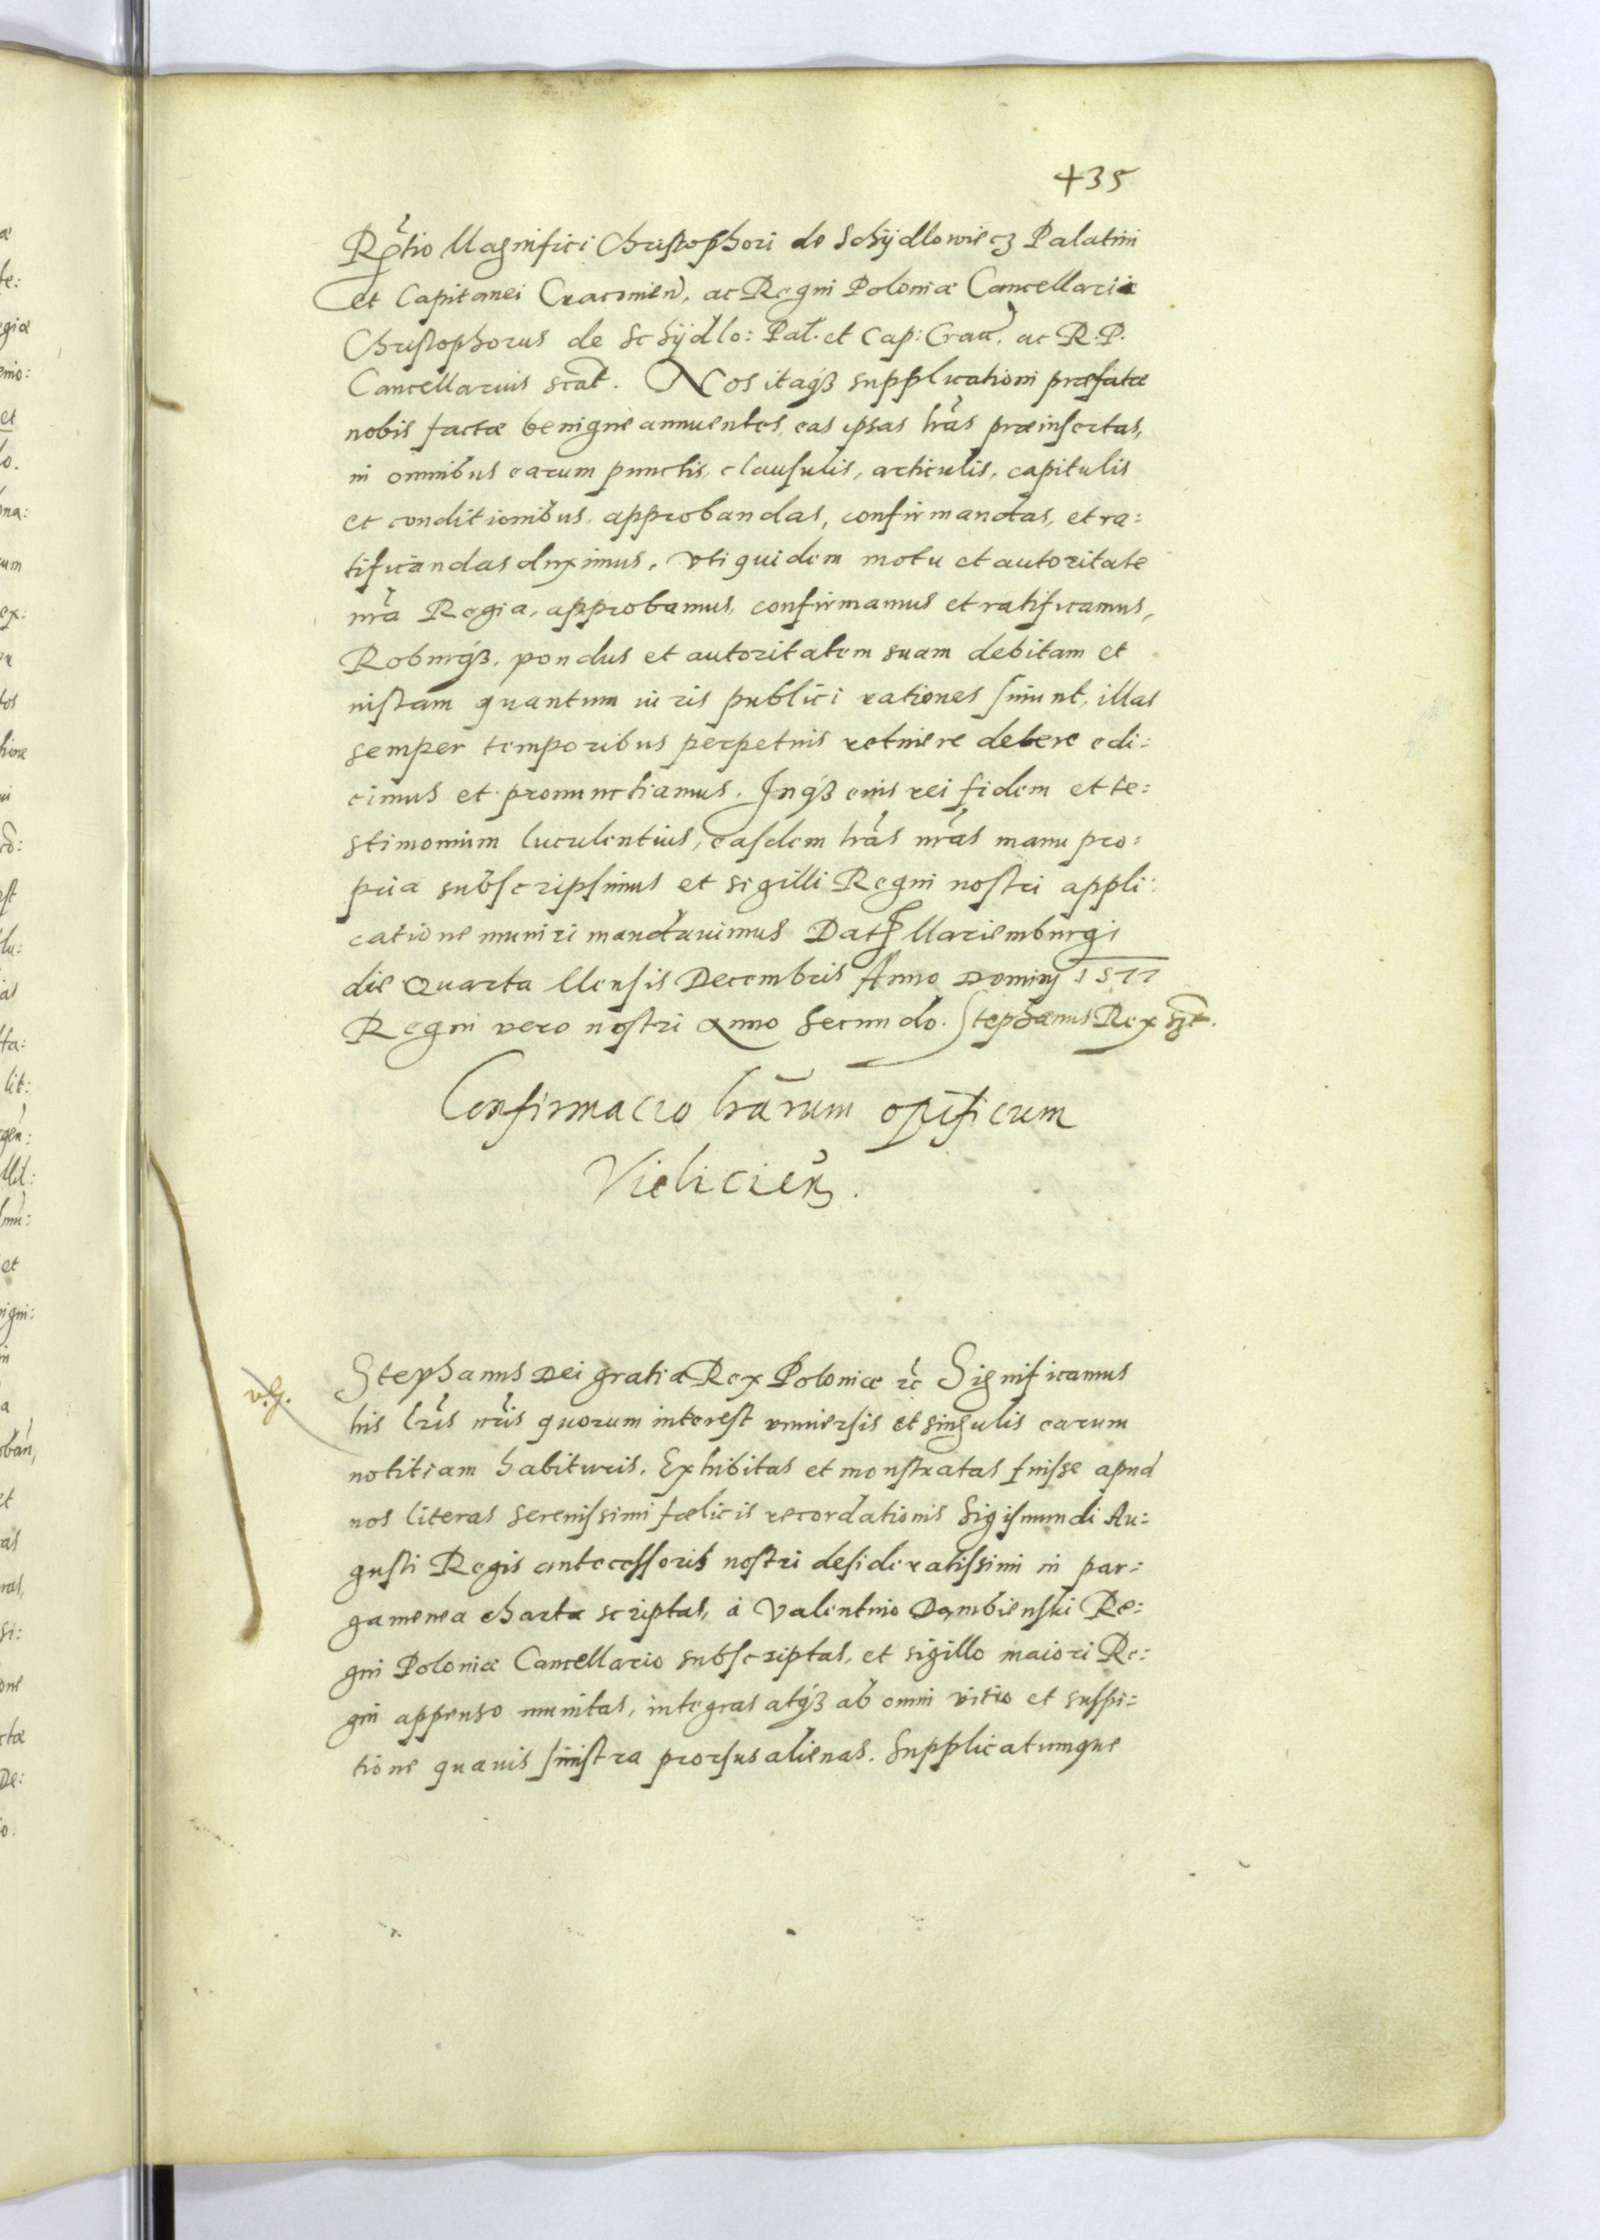 435
Rtio Magnifici Christophori de Schijdlowiecz Palatini
et Capitanei Cracouien̄. ac Regni Poloniæ Cancellarii
Christophorus de Schijdlo: Pal. et Cap: Crac̄. ac R. P.
Cancellarius sc̄at. Nos itaqȝ supplicationi præfatæ
nobis factæ benigne annuentes, eas ipsas lr̄as præinsertas,
in omnibus earum punctis, clausulis, articulis, capitulis
et conditionibus, approbandas, confirmandas, et ra:
tificandas duximus. Vti quidem motu et autoritate
nr̄a Regia, approbamus, confirmamus et ratificamus,
Roburqȝ, pondus et autoritatem suam debitam et
iustam quantum iuris publici rationes sinunt, illas
semper temporibus perpetuis retinere debere edi:
cimus et pronunctiamus. Inqȝ eius rei fidem et te:
stimonium luculentius, easdem lr̄as nr̄as manu pro:
pria subscripsimus et sigilli Regni nostri appli:
catione muniri mandauimus Dat Mariemburgi
die Quarta Mensis Decembris Anno Dominj 1577
Regni vero nostri Anno Secundo. Stephanus Rex sszt.
Confirmacio lr̄arum opificum
Vieliciēn.
Stephanus Dei gratia Rex Poloniæ zc̄ Significamus
his lr̄is nr̄is quorum interest vniuersis et singulis earum
notitiam habituris. Exhibitas et monstratas fuisse apud
nos literas Serenissimi fœlicis recordationis Sigismundi Au:
gusti Regis antecessoris nostri desideratissimi in par:
gamenea charta scriptas, à Valentino Dąmbienski Re:
gni Poloniæ Cancellario subscriptas, et sigillo maiori Re:
gni appenso munitas, integras atqȝ ab omni vitio et suspi:
tione quauis sinistra prorsus alienas. Supplicatumque